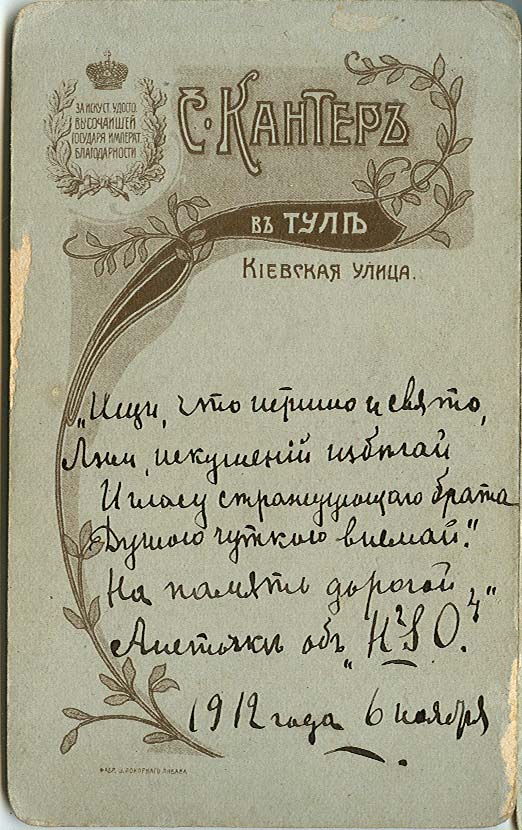 ЗА ИСКУСТ. УДОСТО.
ВЫСОЧАЙШЕЙ
ГОСУДАРЯ ИМПЕРАТ.
БЛАГОДАРНОСТИ
С. КАНТЕРЪ
ВЪ ТУЛѢ
КІЕВСКАЯ УЛИЦА.
„Ищи, что истинно и свято,
Лжи, искушеній избѣгай
И гласу страждующаго брата
Душою чуткою внемай."
На память дорогой
объ „H2SO4."
1912 года 6 ноября